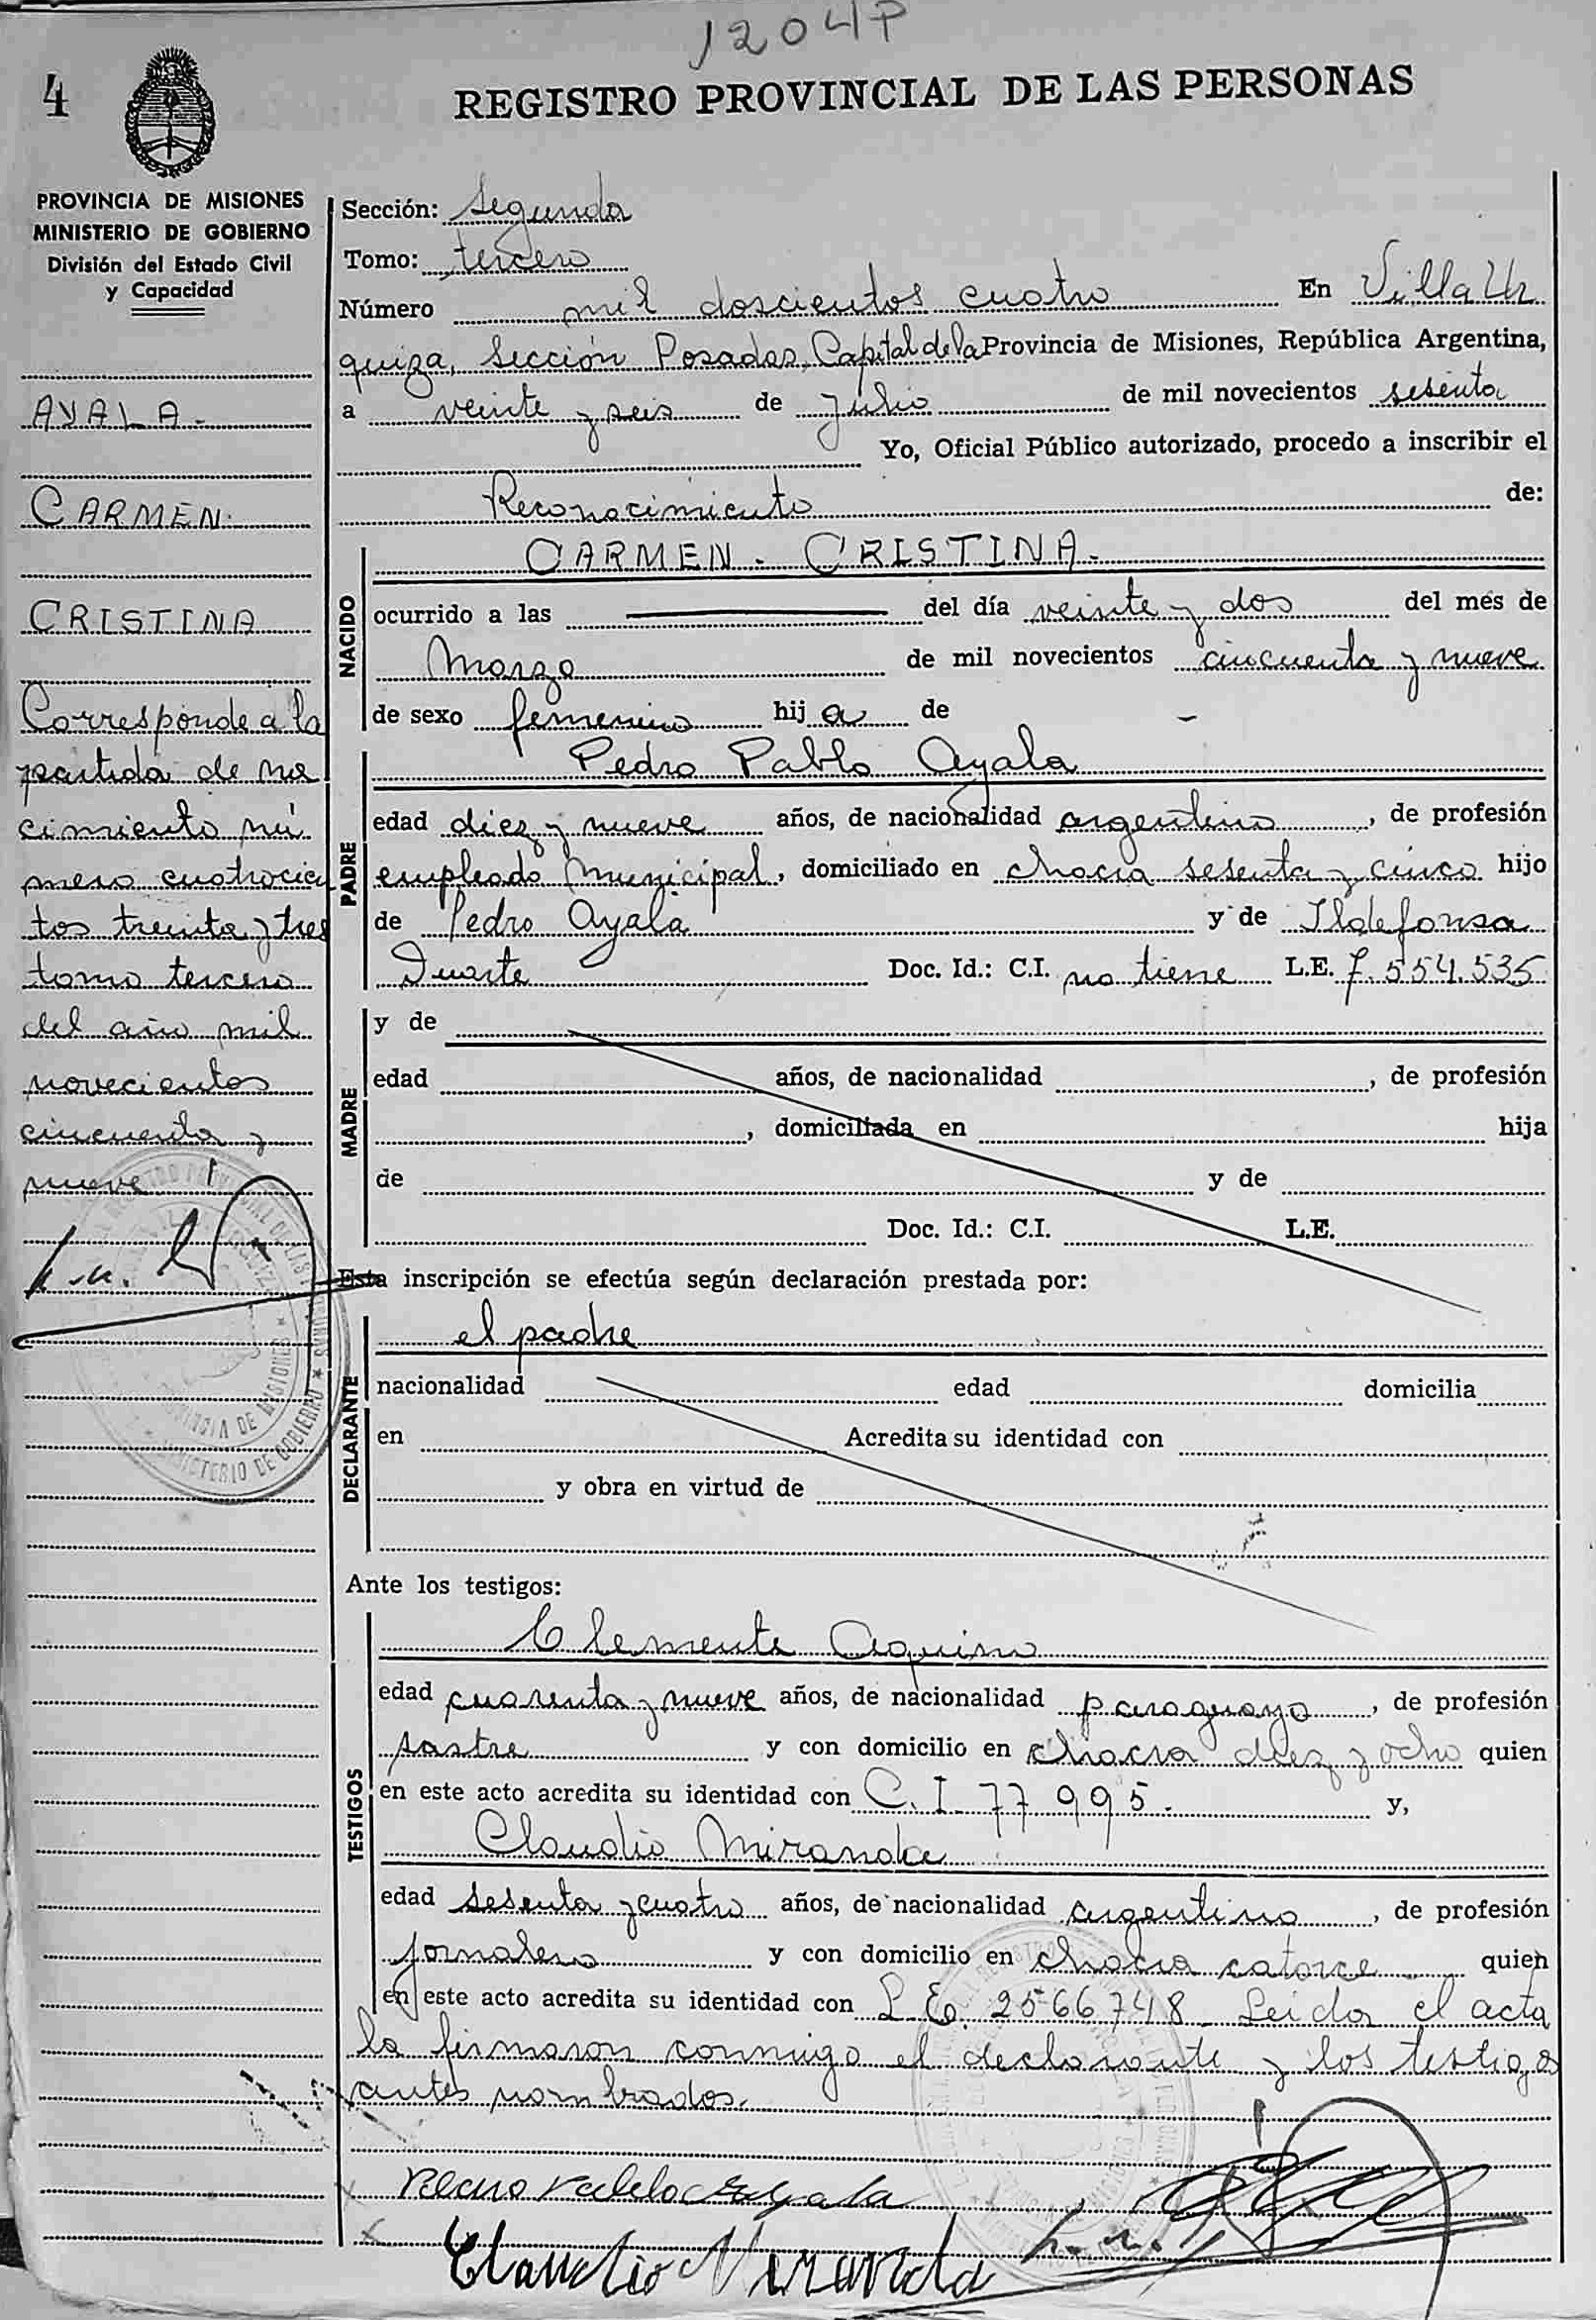 1204P
4
REGISTRO PROVINCIAL DE LAS PERSONAS
PROVINCIA DE MISIONES
MINISTERIO DE GOBIERNO
División del Estado Civil
y Capacidad
AYALA.-
CARMEN.
CRISTINA
Corresponde a la
partida de na
cimiento nú
mero cuatrocien
tos treinta y tres
tomo tercero
del año mil
novecientos
cincuenta y
nueve
Sección: Segunda
Tomo: tercero
Número mil doscientos cuatro En Villa Ur
quiza, Sección Posadas, Capital de la Provincia de Misiones, República Argentina,
a veinte y seis de Julio de mil novecientos sesenta
Yo, Oficial Público autorizado, procedo a inscribir el
Reconocimiento de:
NACIDO
CARMEN - CRISTINA.-
ocurrido a las del día veinte y dos del mes de
Marzo de mil novecientos cincuenta y nueve
de sexo femenino hija de
PADRE
Pedro Pablo Ayala
edad diez y nueve años, de nacionalidad argentino, de profesión
empleado Municipal, domiciliado en chacra sesenta y cinco hijo
de Pedro Ayala y de Ildefonsa
Duarte Doc. Id.: C.I. no tiene L.E. 7.554.535
MADRE
y de
edad años, de nacionalidad , de profesión
, domiciliada en hija
de y de
Doc. Id.: C.I. L.E.
Esta inscripción se efectúa según declaración prestada por:
DECLARANTE
el padre
nacionalidad edad domicilia
en Acredita su identidad con
y obra en virtud de
Ante los testigos:
TESTIGOS
Clemente Aquino
edad cuarenta y nueve años, de nacionalidad paraguayo, de profesión
sastre y con domicilio en chacra diez y ocho quien
en este acto acredita su identidad con C. I. 77995. y,
Claudio Miranda
edad sesenta y cuatro años, de nacionalidad argentino, de profesión
jornalero y con domicilio en chacra catorce quien
en este acto acredita su identidad con L. E. 2566748. Leida el acta
la firmaron conmigo el declarante y los testigos
antes nombrados.
Pedro Pablo Ayala
Claudio Miranda